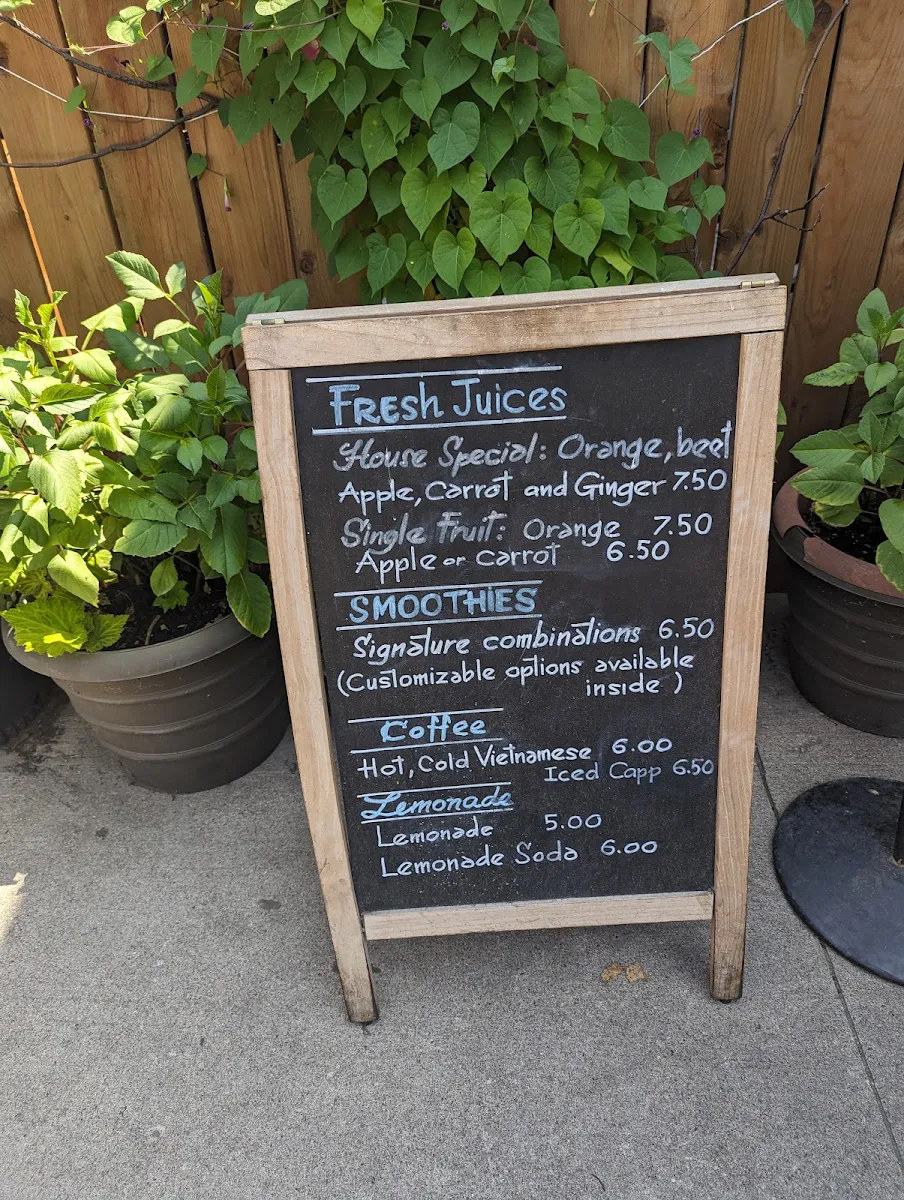 Fresh Juices
House Special: Orange, beet
Apple, Carrot and Ginger 7.50
Single Fruit: Orange 7.50
Apple or Carrot 6.50
SMOOTHIES
Signature combinations 6.50
(Customizable options available
inside )
Coffee
Hot, Cold Vietnamese 6.00
Iced Capp 6.50
Lemonade
Lemonade 5.00
Lemonade Soda 6.00